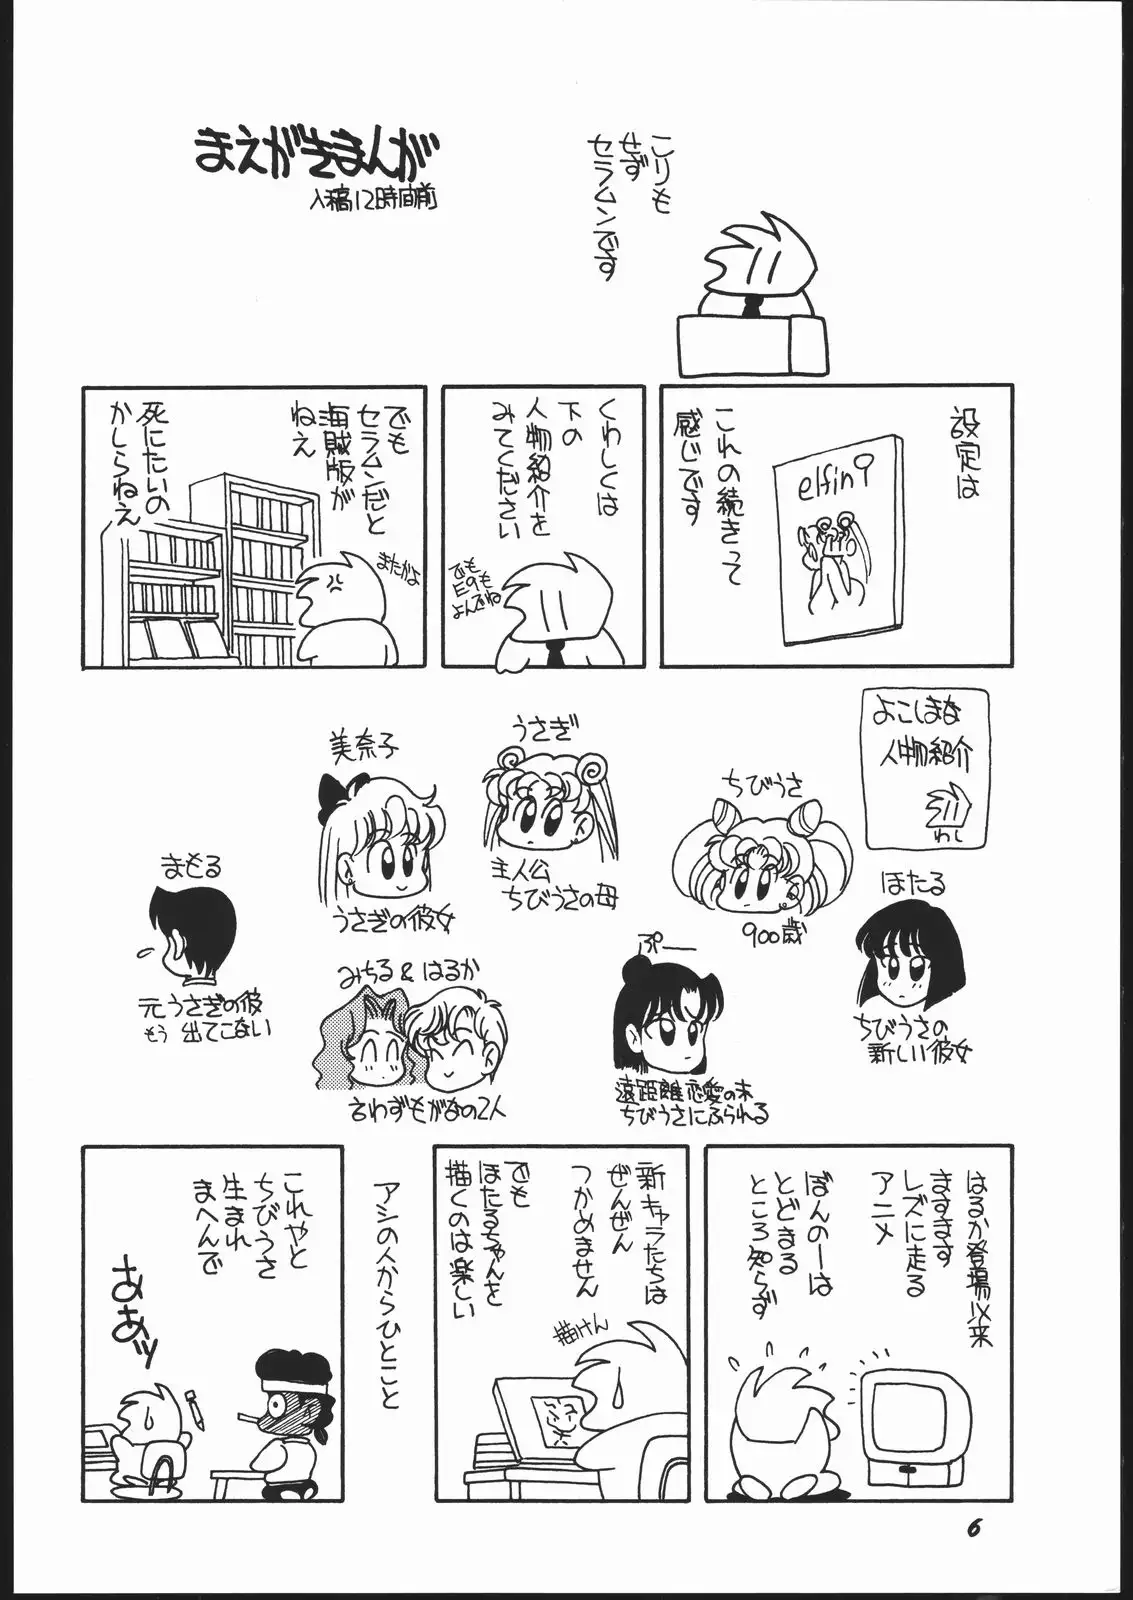 まえがきまんが
入稿12時間前
こりも
せず
セラムンです
設定は
elfin
これの続きって
感じです
くわしくは
下の
人物紹介を
みてください
でも
E9も
よんでね
でも
セラムンだと
海賊版が
ねえ
死にたいの
かしらねえ
またかよ
よこしまな
人物紹介
わし
うさぎ
主人公
ちびうさの母
美奈子
うさぎの彼女
ちびうさ
900歳
ほたる
ちびうさの
新しい彼女
まもる
元うさぎの彼
もう出てこない
みちる&はるか
言わずもがなの2人
ぷー
遠距離恋愛の末
ちびうさにふられる
はるか登場以来
ますます
レズに走る
アニメ
ぼんのーは
とどまる
ところ知らず
新キャラたちは
ぜんぜん
つかめません
でも
ほたるちゃんを
描くのは楽しい
描けん
アシの人からひとこと
これやと
ちびうさ
生まれ
まへんで
ああッ
6